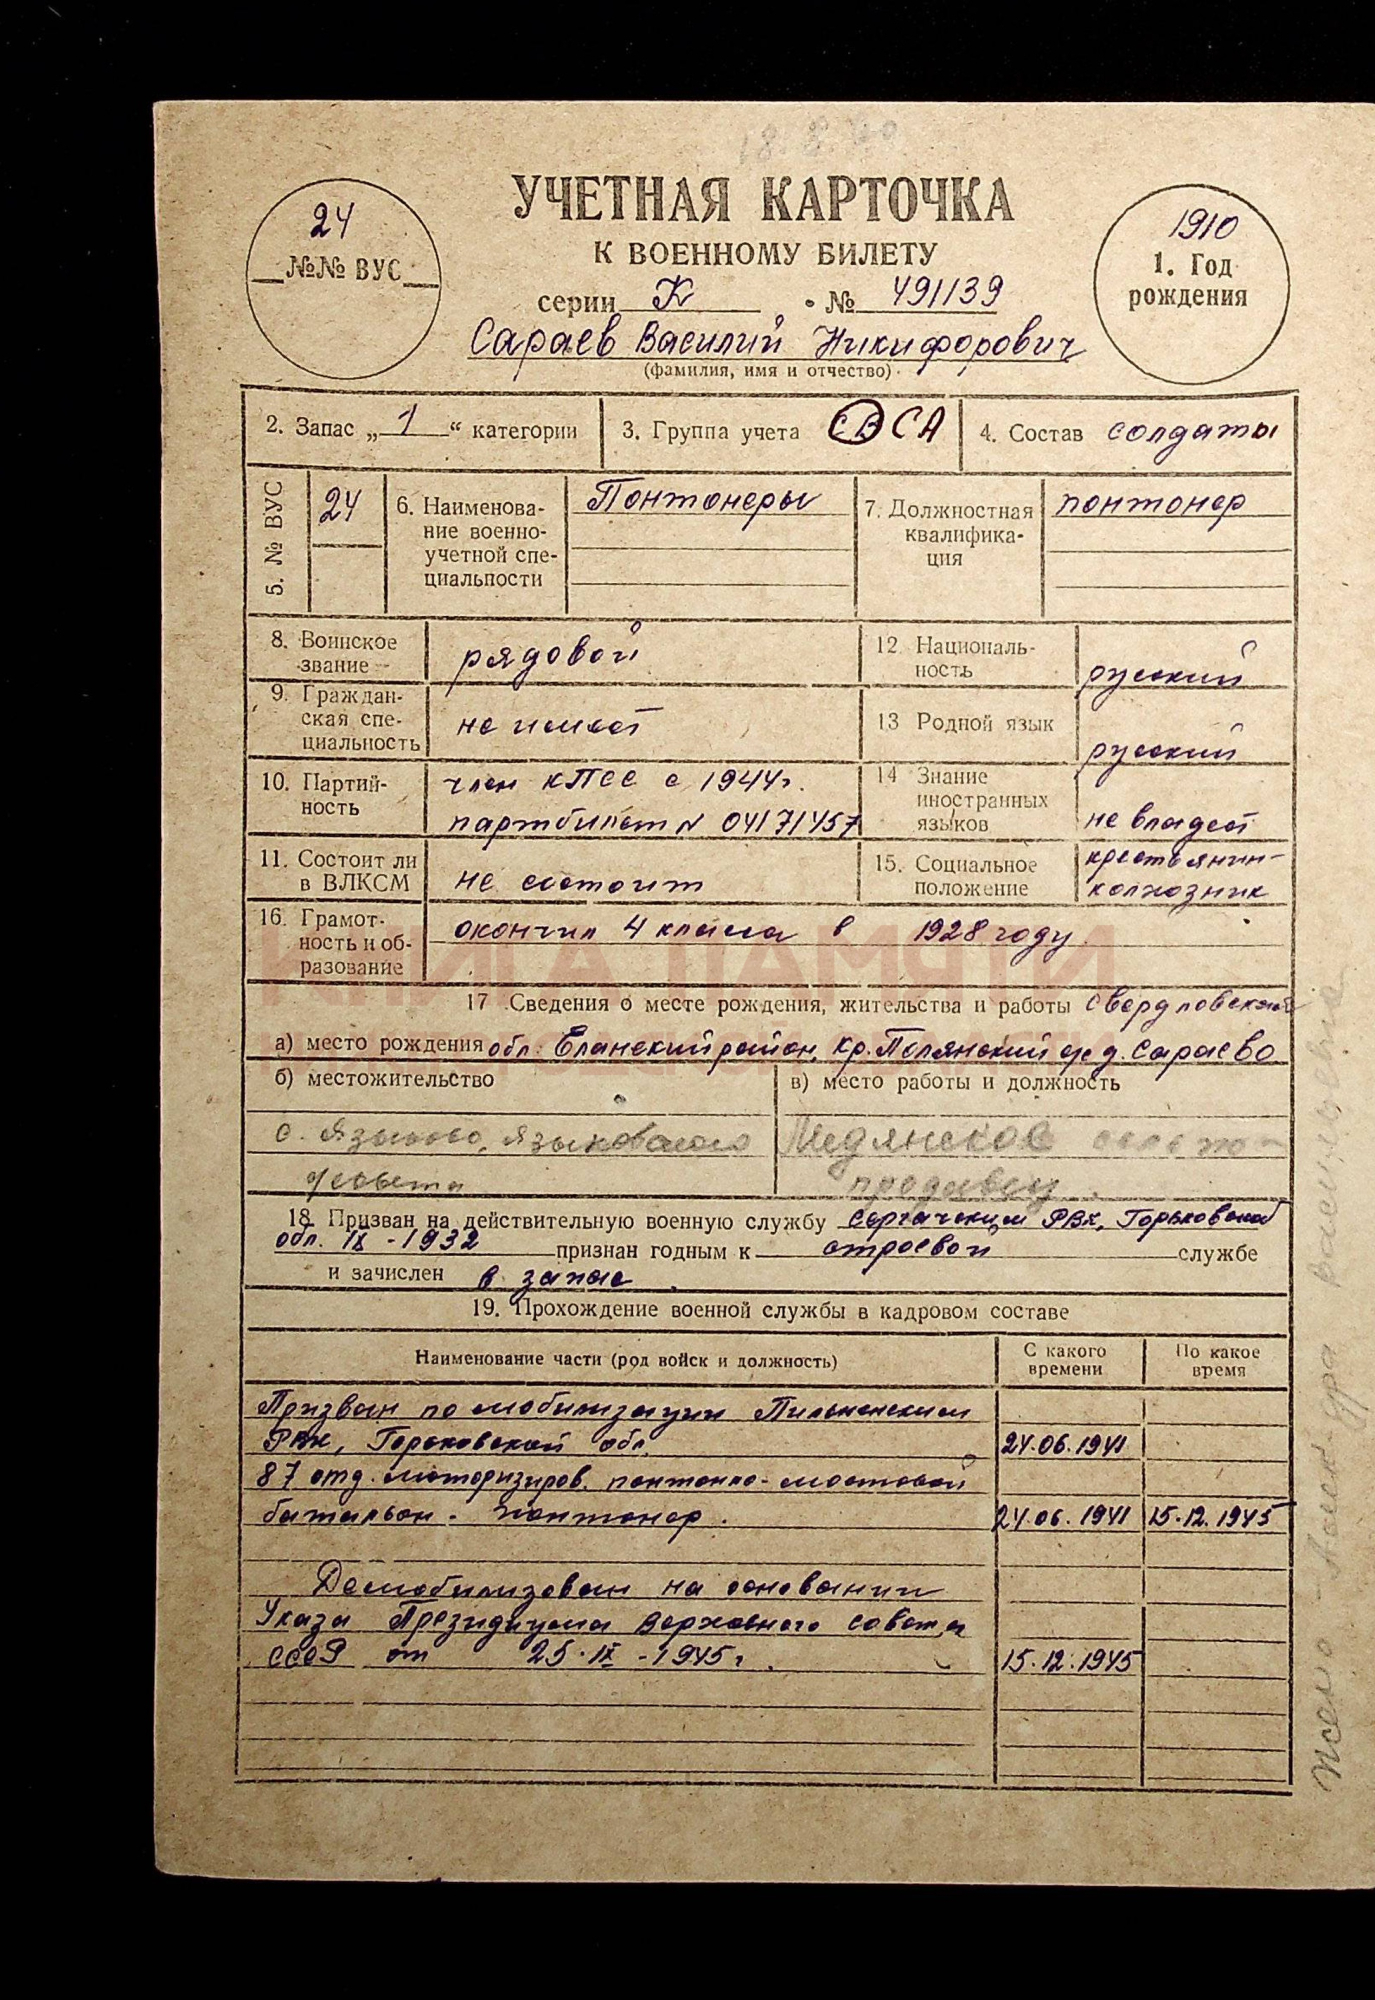 18.8.70
УЧЕТНАЯ КАРТОЧКА
К ВОЕННОМУ БИЛЕТУ
серии К № 491139
Сараев Василий Никифорович
(фамилия, имя и отчество)
24
№№ ВУС
1910
1. Год
рождения
2. Запас „1“ категории
3. Группа учета СВ СА
4. Состав солдаты
5. № ВУС
24
6. Наименова-
ние военно-
учетной спе-
циальности
Понтонеры
7. Должностная
квалифика-
ция
понтонер
8. Воинское
звание
рядовой
9. Граждан-
ская спе-
циальность
не имеет
10. Партий-
ность
член КПСС с 1944г.
партбилет № 04171457
11. Состоит ли
в ВЛКСМ
не состоит
12 Националь-
ность
русский
13 Родной язык
русский
14 Знание
иностранных
языков
не владеет
15. Социальное
положение
крестьянин-
колхозник
16. Грамот-
ность и об-
разование
окончил 4 класса в 1928 году
КНИГА ПАМЯТИ
НИЖЕГОРОДСКОЙ ОБЛАСТИ
17 Сведения о месте рождения, жительства и работы Свердловской
а) место рождения обл. Еланский район, Кр. Полянский с/с д. Сараево
б) местожительство
с. Языково, Языковского
с/совета
в) место работы и должность
Медянское сельпо-
продавец.
18 Призван на действительную военную службу Сергачским РВК, Горьковской
обл. IX - 1932 признан годным к строевой службе
и зачислен в запас.
19. Прохождение военной службы в кадровом составе
Наименование части (род войск и должность)
С какого
времени
По какое
время
Призван по мобилизации Пильненским
РВК, Горьковской обл. 24.06.1941
87 отд. моторизиров. понтонно-мостовой
батальон - понтонер. 24.06.1941 15.12.1945
Демобилизован на основании
Указа Президиума Верховного совета
СССР от 25.IX - 1945г. 15.12.1945
Жена - Алек-дра Васильевна